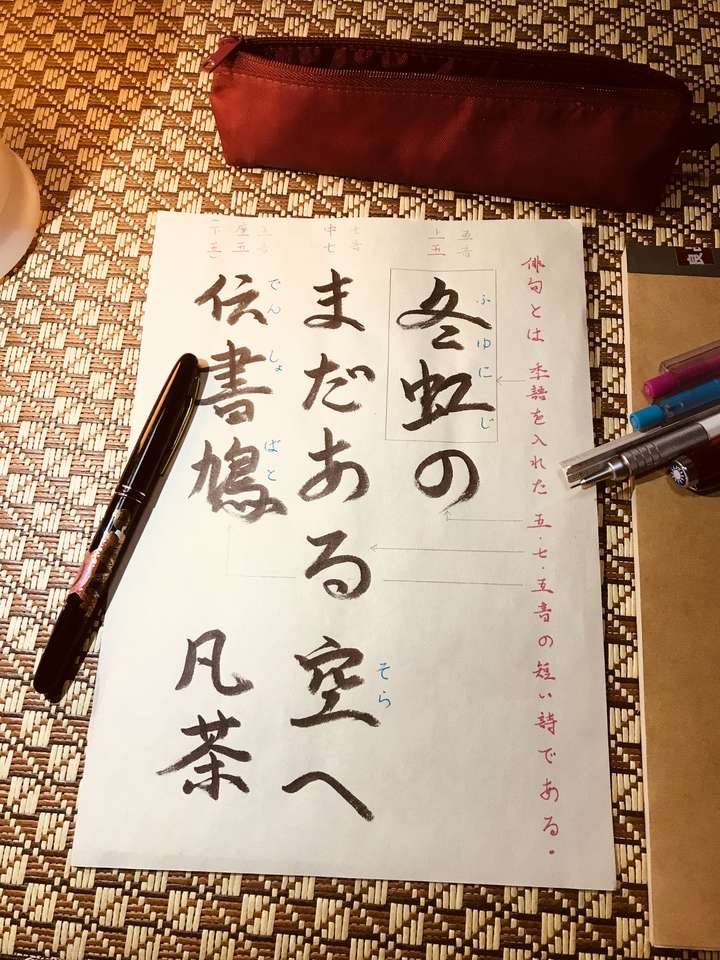 俳句とは 季語を入れた 五・七・五音の短い詩である。
五音
上五
冬虹の
ふゆにじ
七音
中七
まだある空へ
そら
五音
座五
(下五)
伝書鳩 凡茶
でんしょばと